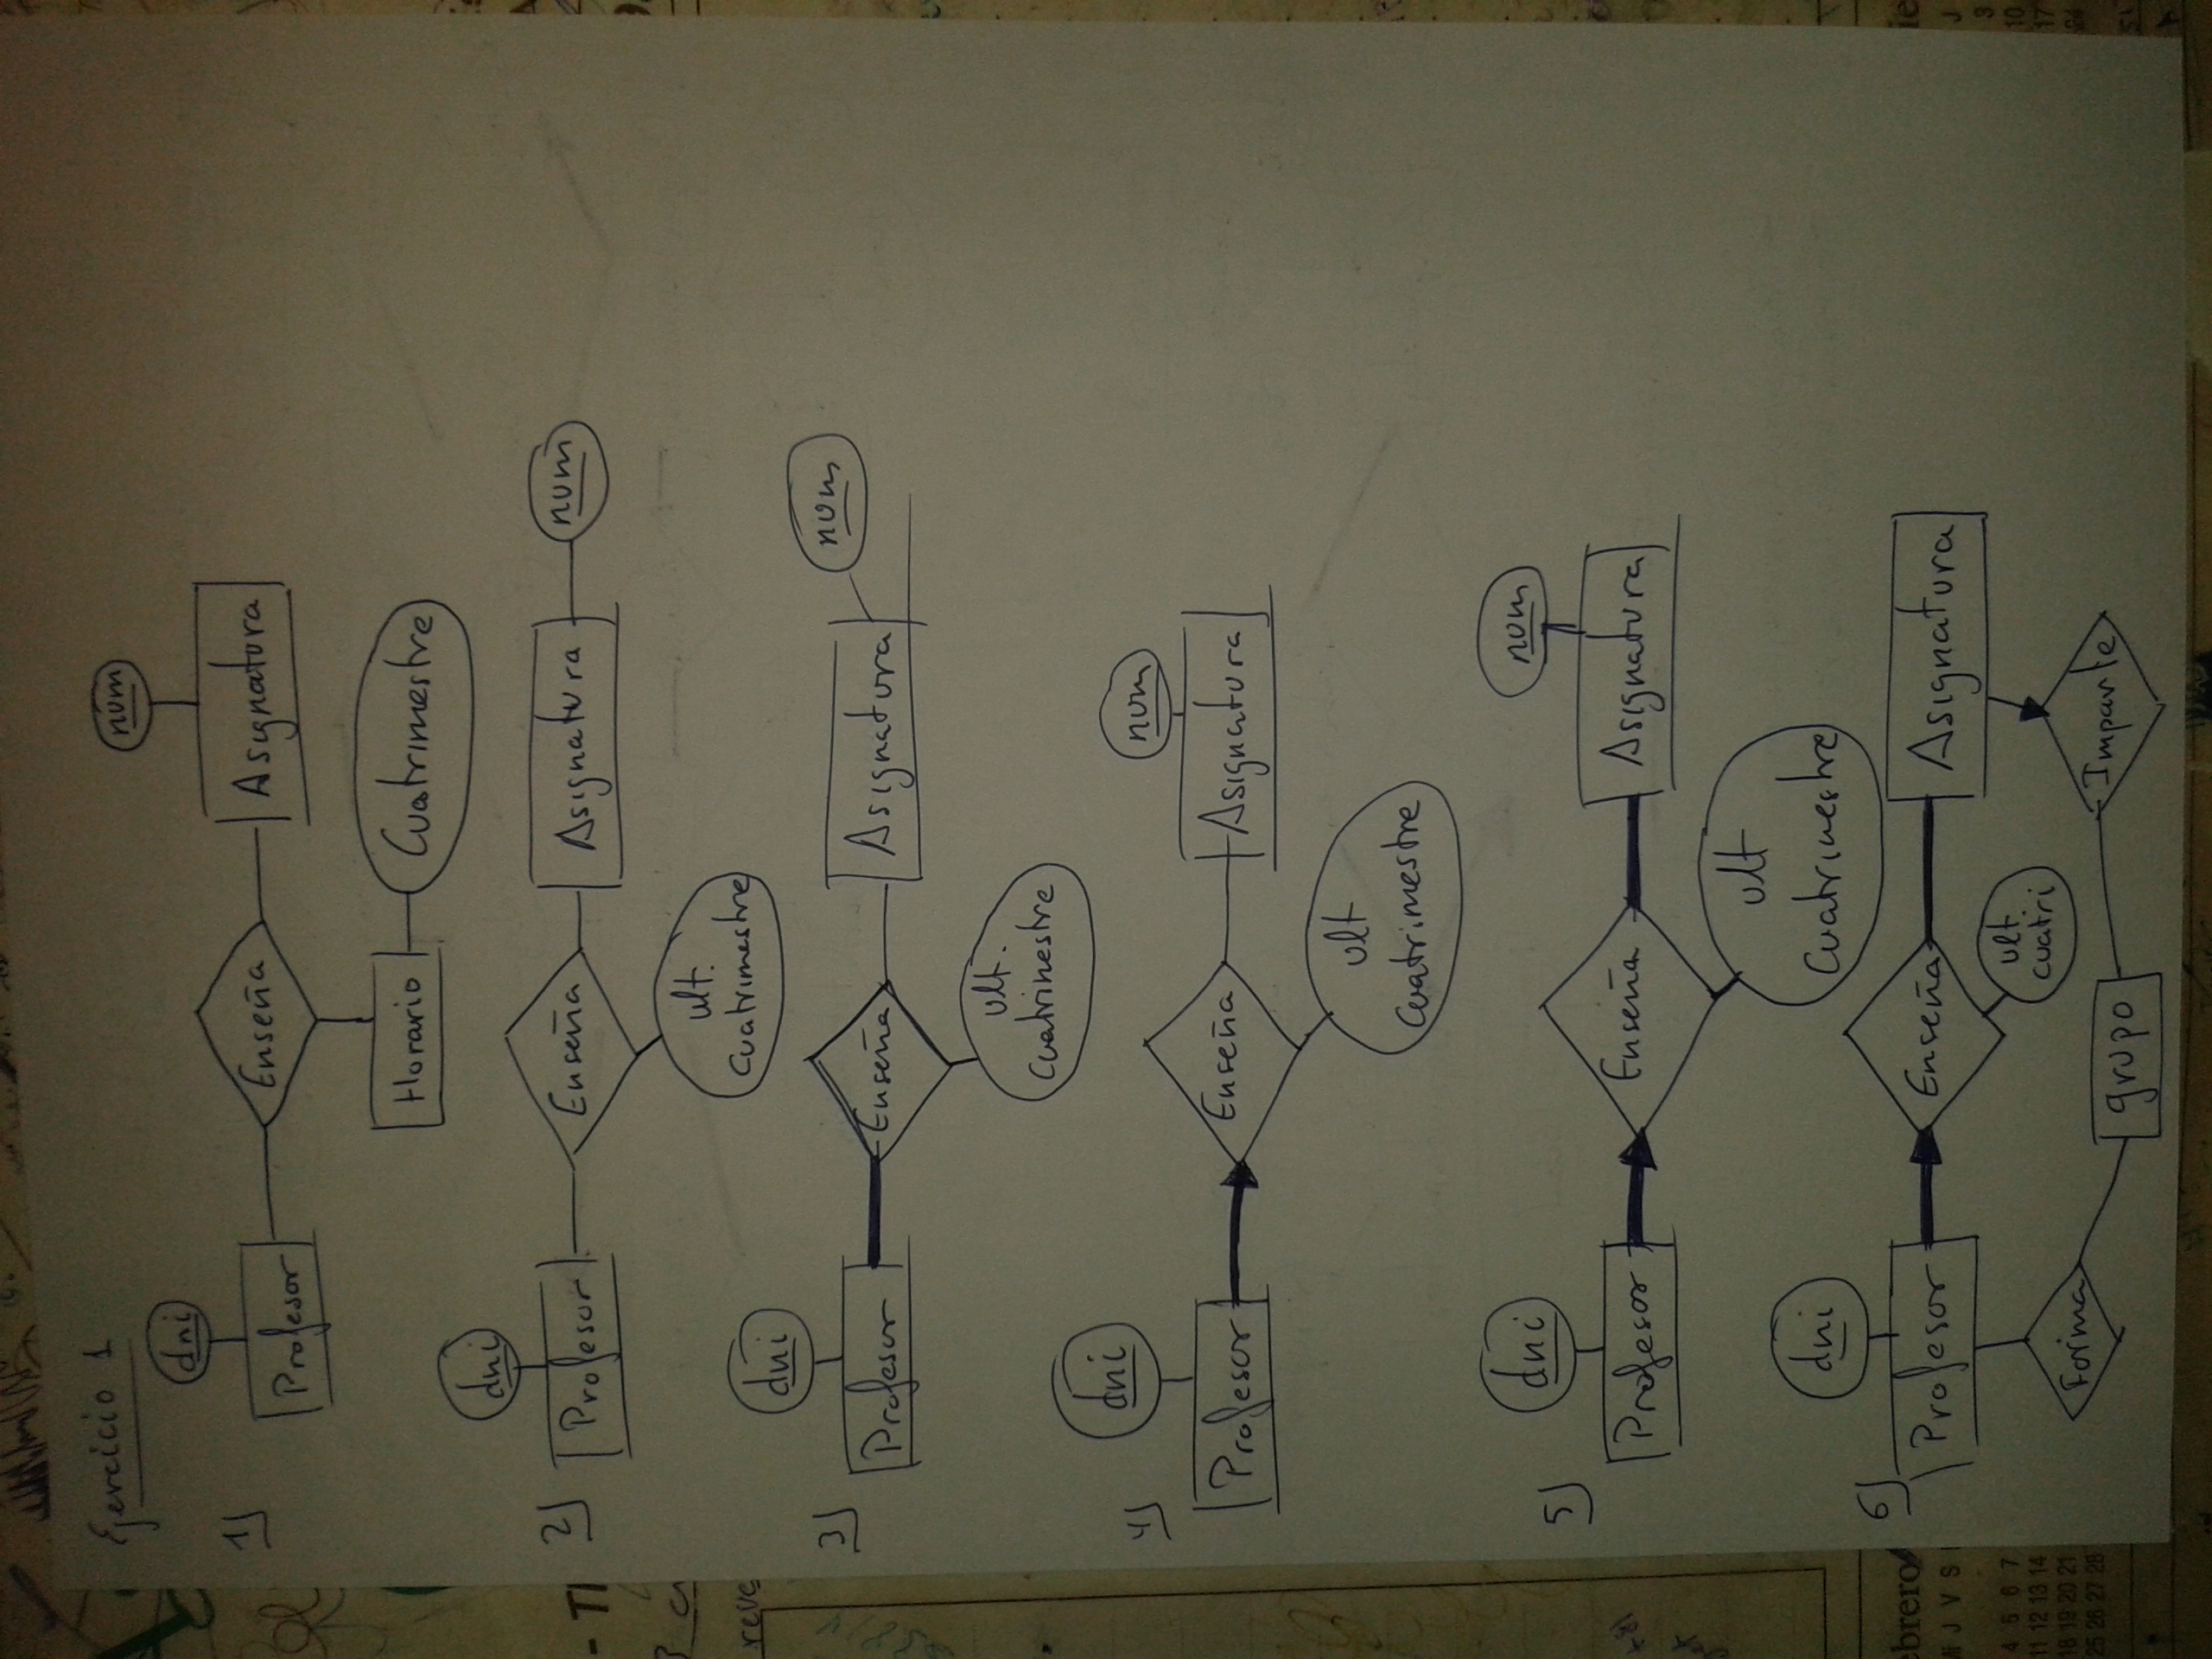 Ejercicio 1
1)
dni
num
Profesor
Enseña
Asignatura
Horario
Cuatrimestre
2)
dni
Profesor
Enseña
Asignatura
num
ult.
cuatrimestre
3)
dni
Profesor
Enseña
Asignatura
num
ult.
cuatrinestre
4)
dni
num
Profesor
Enseña
Asignatura
ult
cuatrimestre
5)
dni
num
Profesor
Enseña
Asignatura
ult
cuatrimestre
6)
dni
Profesor
Enseña
Asignatura
ult.
cuatri
Forma
grupo
Imparte
reve
ebrero
J V S
4 5 6 7
11 12 13 14
18 19 20 21
25 26 27 28
J
3
10
17
24